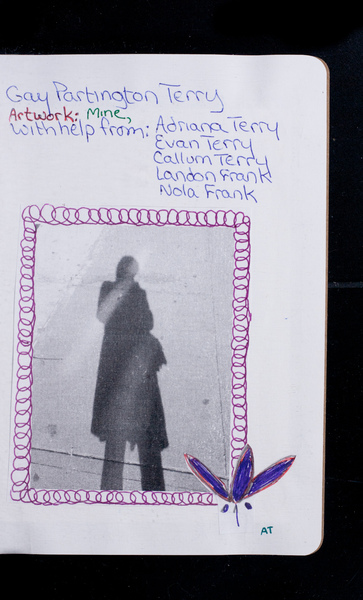 Gay Partington Terry
Artwork: Mine,
with help from: Adriana Terry
Evan Terry
Callum Terry
Landon Frank
Nola Frank
AT